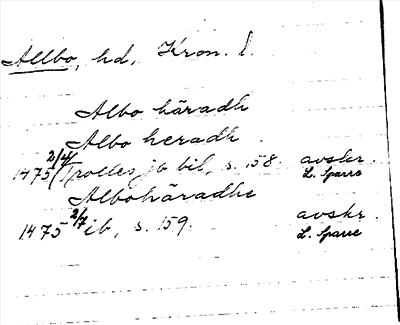 Allbo, hd, Kron. l.
Albo häradh
Albo heradh
1475 2/4 Trolles jb bil, s. 158. avskr. L. Sparre
Albohäradhe
1475 2/7 ib, s. 159. avskr. L. Sparre